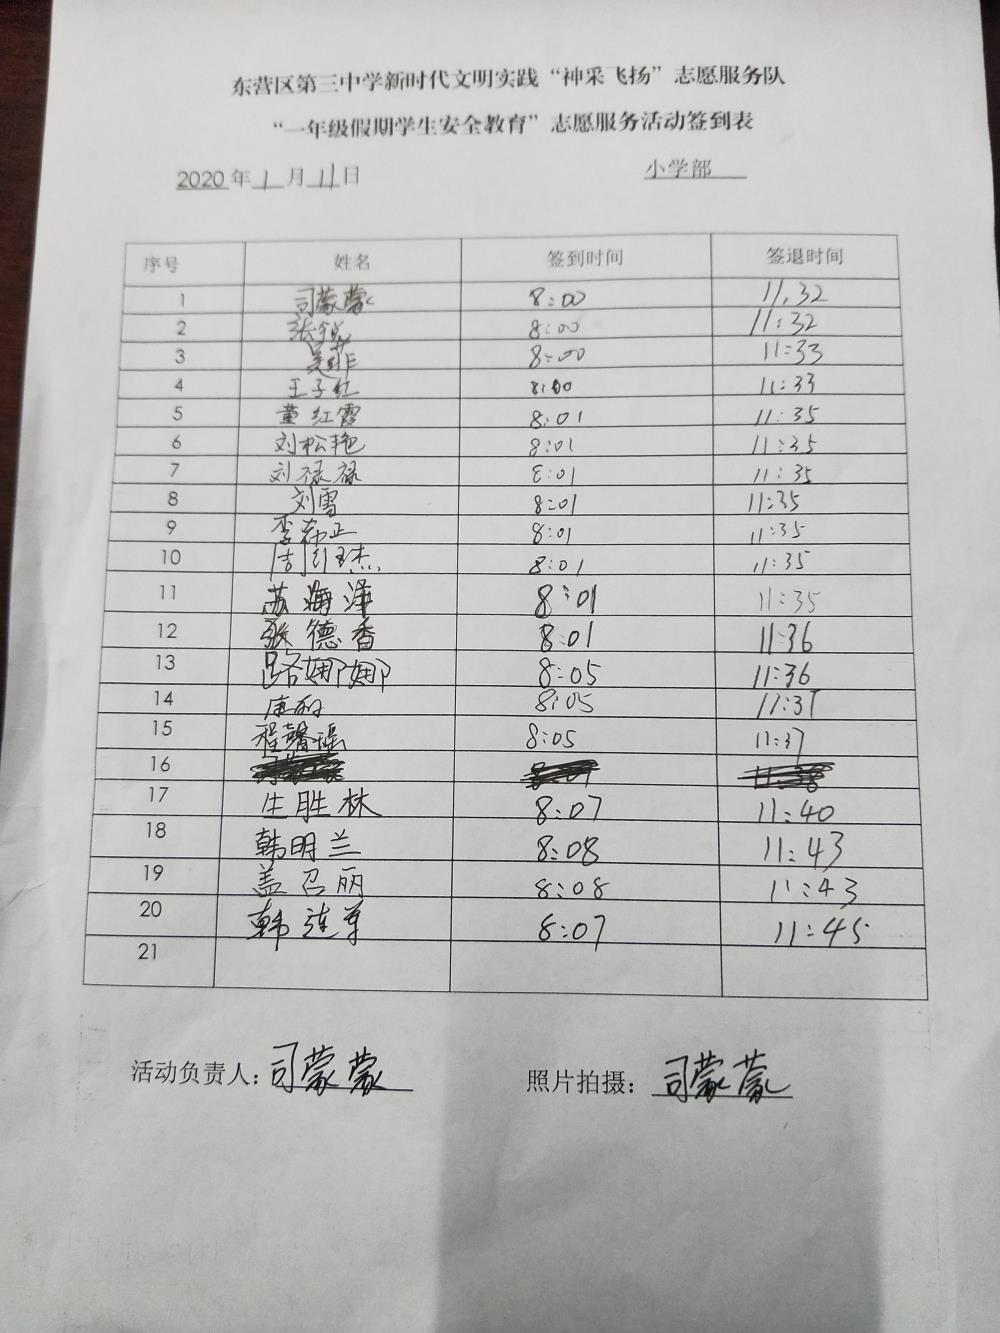 东营区第三中学新时代文明实践“神采飞扬”志愿服务队
“一年级假期学生安全教育”志愿服务活动签到表
2020年1月11日 小学部
序号 姓名 签到时间 签退时间
1 司蒙蒙 8:00 11,32
2 张锐 8:00 11:32
3 8:00 11:33
4 王子红 8:00 11:33
5 董红霞 8:01 11:35
6 刘松艳 8:01 11:35
7 刘禄禄 8:01 11:35
8 刘雪 8:01 11:35
9 李希正 8:01 11:35
10 8:01 11:35
11 苏海泽 8:01 11:35
12 张德香 8:01 11:36
13 路娜娜 8:05 11:36
14 唐丽 8:05 11:37
15 程馨瑶 8:05 11:37
16
17 生胜林 8:07 11:40
18 韩明兰 8:08 11:43
19 盖召丽 8:08 11:43
20 韩连革 8:07 11:45
21
活动负责人：司蒙蒙 照片拍摄：司蒙蒙